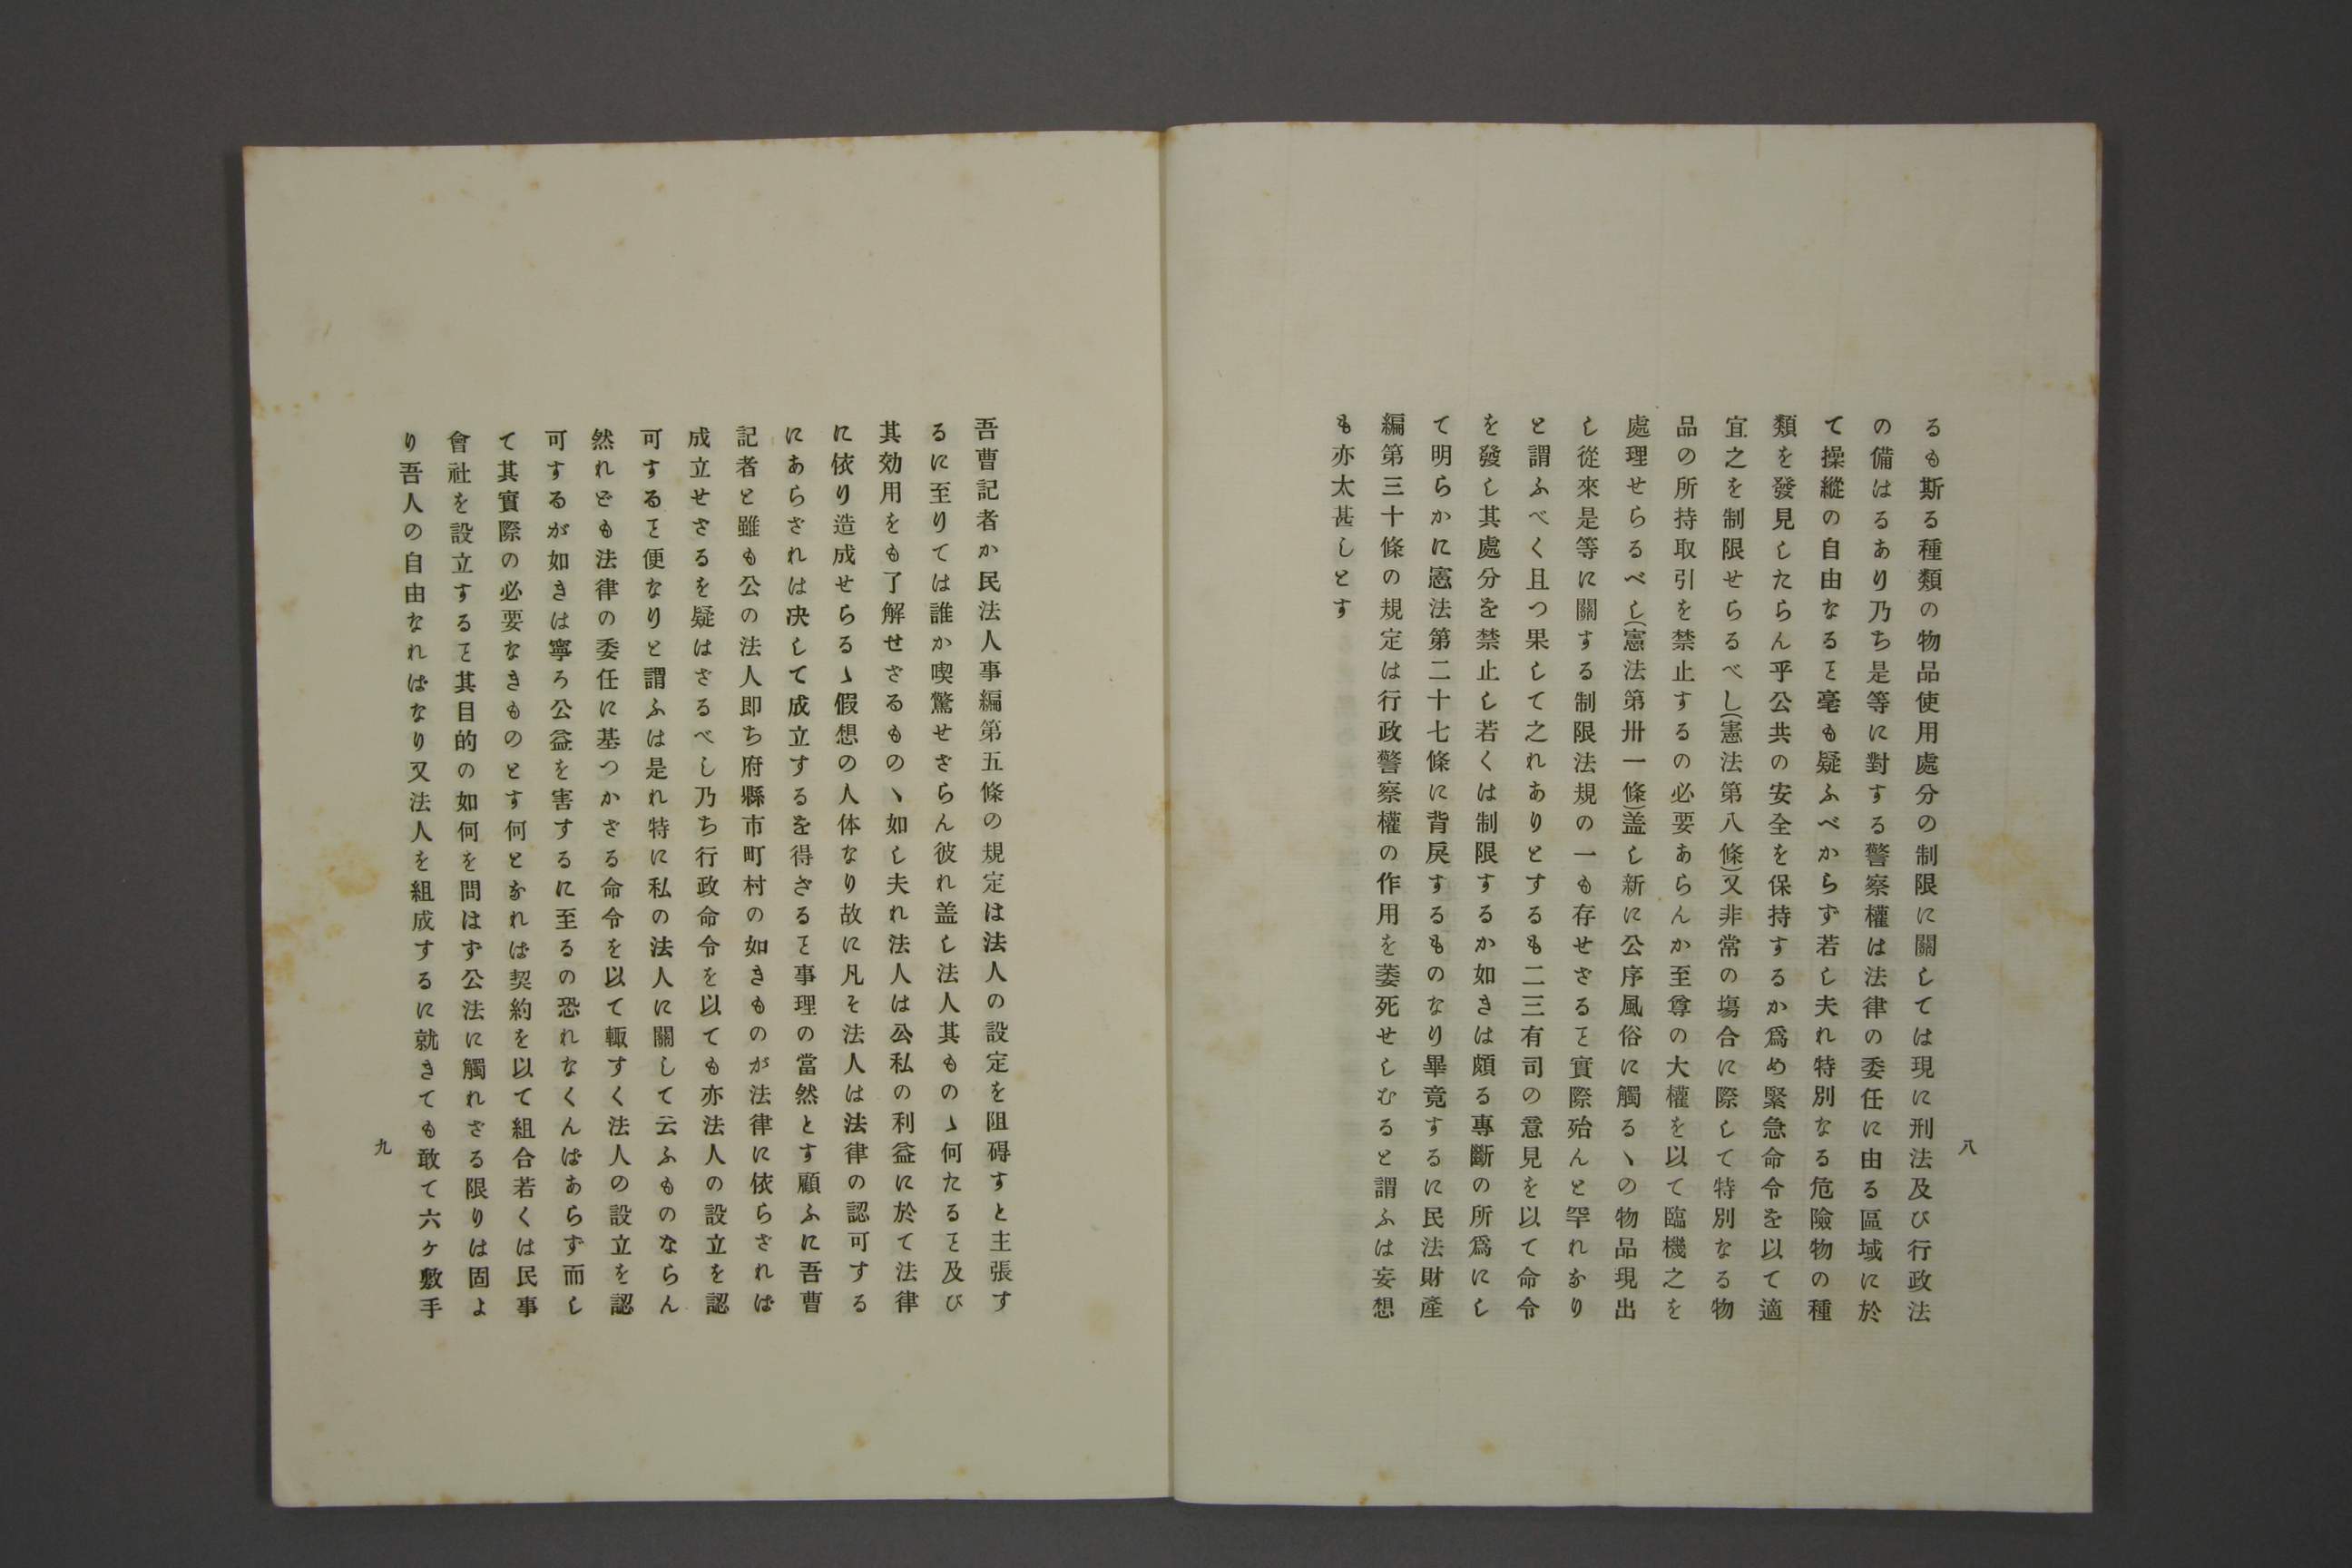 るも斯る種類の物品使用處分の制限に關しては現に刑法及び行政法
の備はるあり乃ち是等に對する警察權は法律の委任に由る區域に於
て操縱の自由なるヿ毫も疑ふべからず若し夫れ特別なる危險物の種
類を發見したらん乎公共の安全を保持するか爲め緊急命令を以て適
宜之を制限せらるべし(憲法第八條)又非常の塲合に際して特別なる物
品の所持取引を禁止するの必要あらんか至尊の大權を以て臨機之を
處理せらるべし(憲法第卅一條)盖し新に公序風俗に觸るゝの物品現出
し從來是等に關する制限法規の一も存せざるヿ實際殆んと罕れなり
と謂ふべく且つ果して之れありとするも二三有司の意見を以て命令
を發し其處分を禁止し若くは制限するか如きは頗る專斷の所爲にし
て明らかに憲法第二十七條に背戾するものなり畢竟するに民法財產
編第三十條の規定は行政警察權の作用を萎死せしむると謂ふは妄想
も亦太甚しとす
八
吾曹記者か民法人事編第五條の規定は法人の設定を阻碍すと主張す
るに至りては誰か喫驚せさらん彼れ盖し法人其ものゝ何たるヿ及び
其効用をも了解せざるものゝ如し夫れ法人は公私の利益に於て法律
に依り造成せらるゝ假想の人体なり故に凡そ法人は法律の認可する
にあらされは决して成立するを得ざるヿ事理の當然とす顧ふに吾曹
記者と雖も公の法人即ち府縣市町村の如きものが法律に依らざれば
成立せさるを疑はざるべし乃ち行政命令を以ても亦法人の設立を認
可するヿ便なりと謂ふは是れ特に私の法人に關して云ふものならん
然れども法律の委任に基つかざる命令を以て輙すく法人の設立を認
可するが如きは寧ろ公益を害するに至るの恐れなくんばあらず而し
て其實際の必要なきものとす何となれは契約を以て組合若くは民事
會社を設立するヿ其目的の如何を問はず公法に觸れざる限りは固よ
り吾人の自由なればなり又法人を組成するに就きても敢て六ケ敷手
九